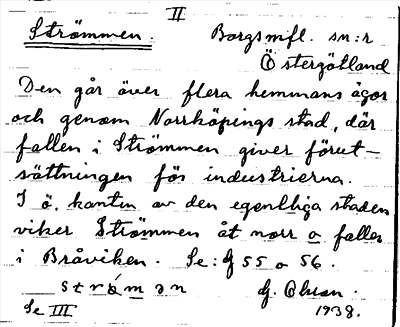 II
Strömmen. Borgsmfl. sn:r
Östergötland
Den går över flera hemmans ägor
och genom Norrköpings stad, där
fallen i Strömmen giver förut-
sättningen för industrierna.
I ö. kanten av den egentliga staden
viker Strömmen åt norr o faller
i Bråviken. Se: G 55 o 56.
strömən G. Olson.
Se III 1938.